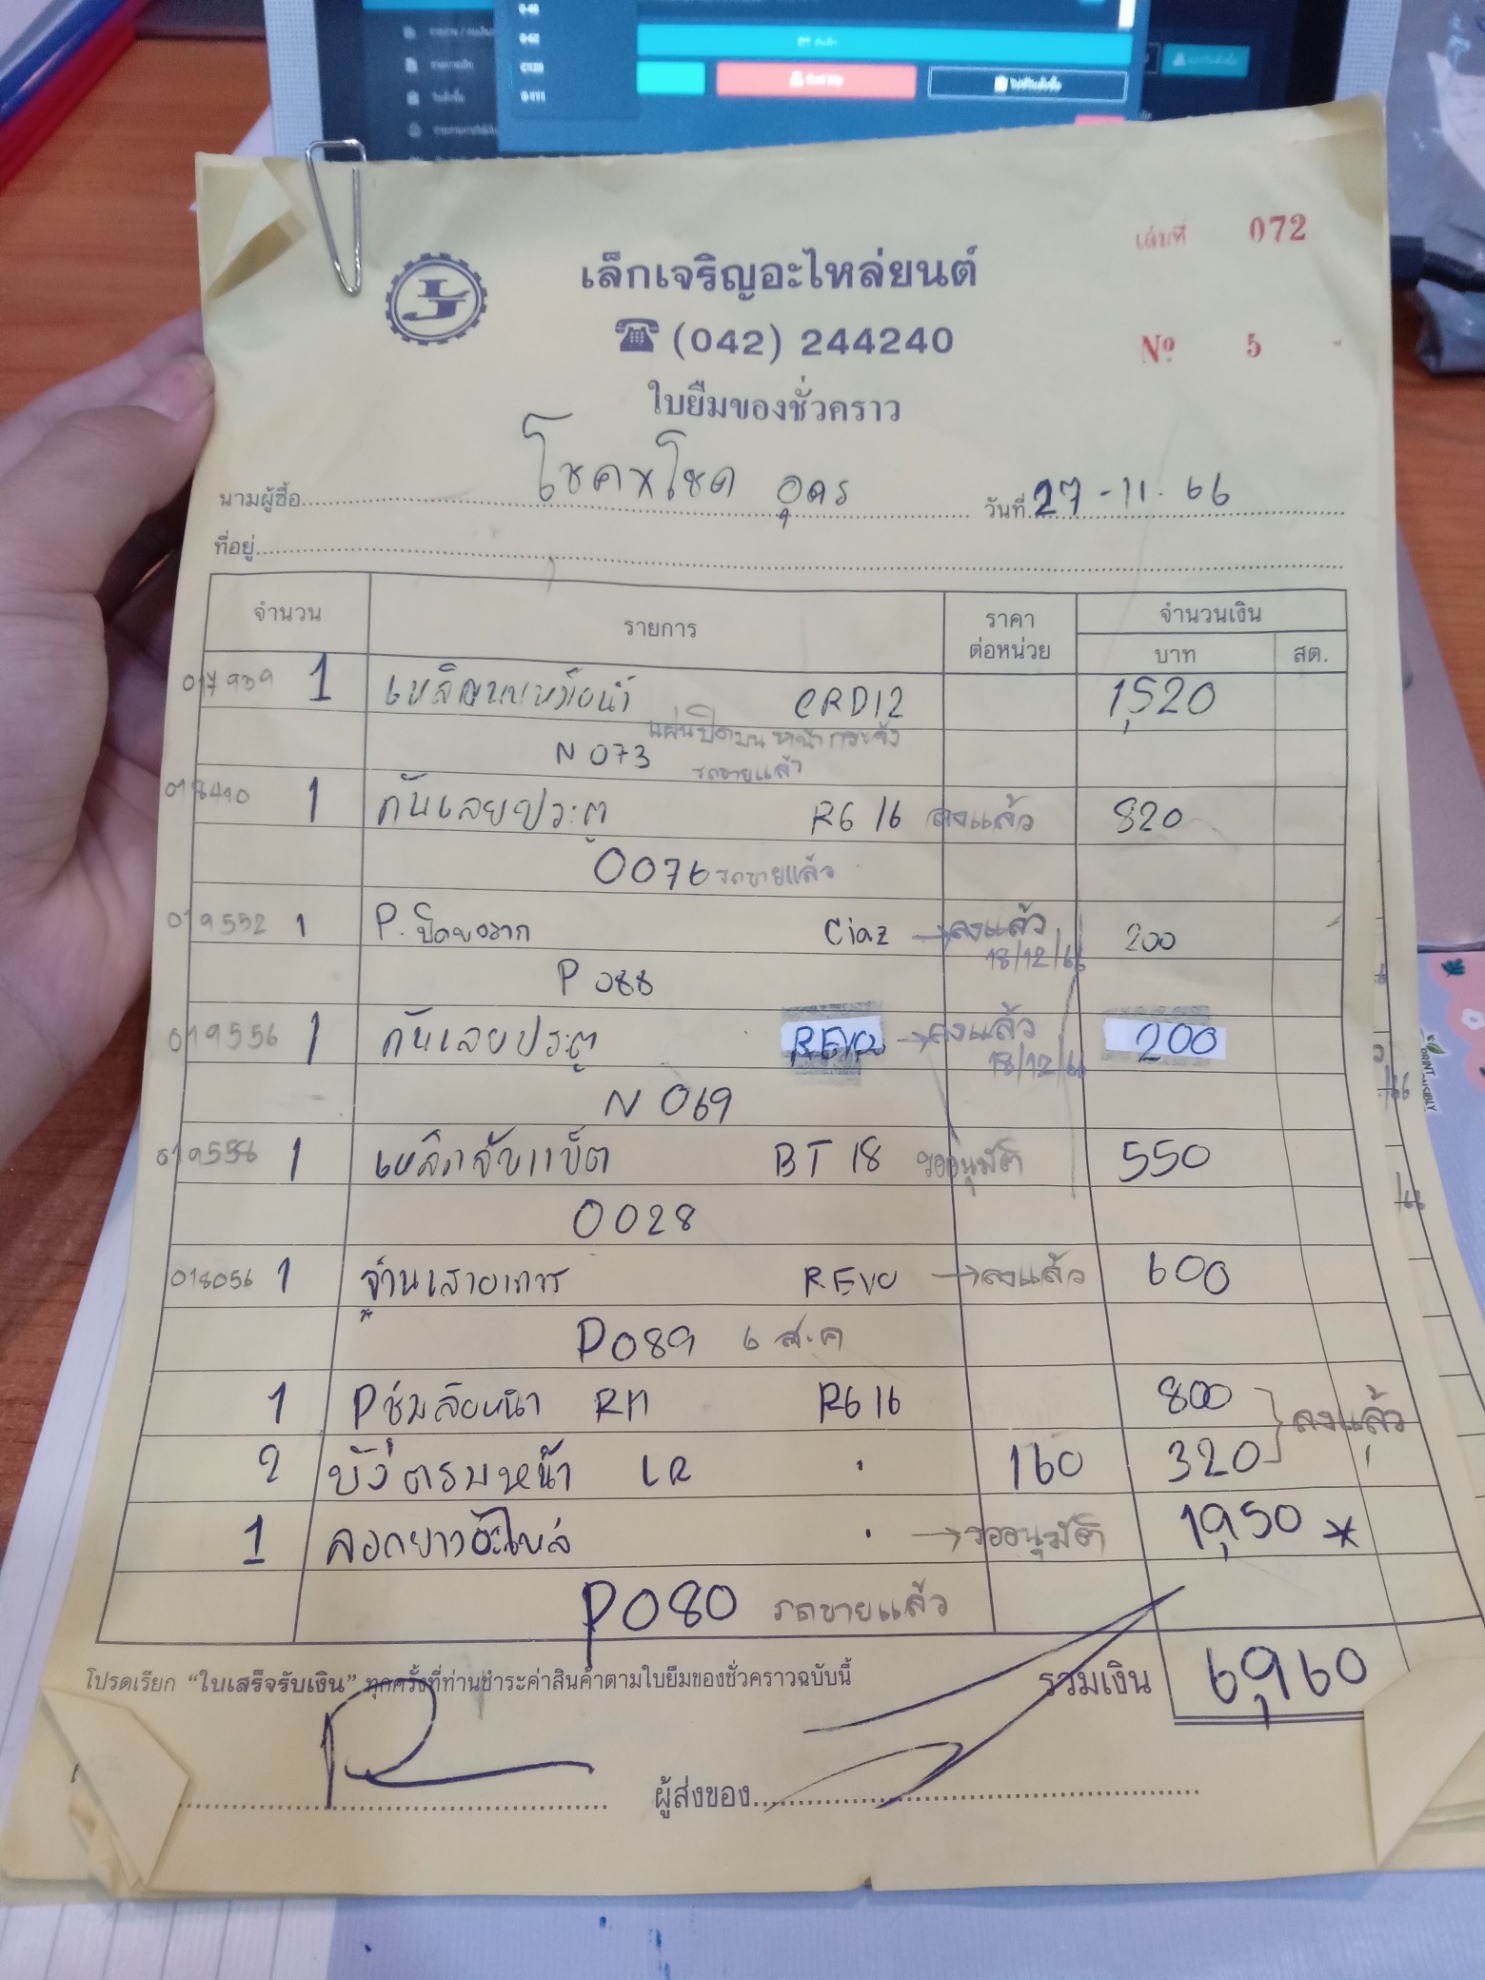 เล่มที่ 072
เล็กเจริญอะไหล่ยนต์
☎ (042) 244240
Nº 5
ใบยืมของชั่วคราว
นามผู้ซื้อ โชค x โชค อุดร วันที่ 27-11-66
ที่อยู่
จำนวน รายการ ราคาต่อหน่วย จำนวนเงิน
บาท สต.
017939 1 CRD12 1,520
แผ่นปิดบนหน้ากระจัง
N 073 รถขายแล้ว
1 กันเลยประตู RG 16 ลงแล้ว 820
0076 รถขายแล้ว
019552 1 Ciaz → ลงแล้ว 18/12/66 200
P 088
019556 1 กันเลยประตู REVO → ลงแล้ว 18/12/66 200
N 069
1 เหล็กจับแบ็ต BT 18 รออนุมัติ 550
0028
018056 1 จานเสาอากาศ REVO → ลงแล้ว 600
P089 6 ส.ค
1 P ซุ้มล้อหน้า RH RG 16 800
ลงแล้ว
2 บังตรมหน้า LR " 160 320
1 ลอกยางอะไหล่ " → รออนุมัติ 1,950 *
P080 รถขายแล้ว
โปรดเรียก “ใบเสร็จรับเงิน” ทุกครั้งที่ท่านชำระค่าสินค้าตามใบยืมของชั่วคราวฉบับนี้ รวมเงิน 6,960
ผู้ส่งของ